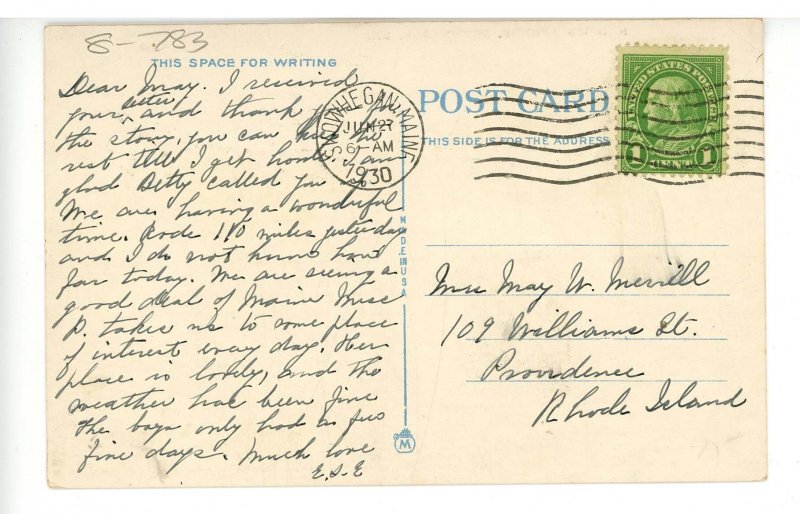 8-783
THIS SPACE FOR WRITING
Dear May. I received
your letter, and thank you
the story, you can the
rest till I get home. I am
glad Betty called you
We are having a wonderful
time. Rode 110 miles yesterday
and I do not know how
far today. We are seeing a
good deal of Maine Miss
P. takes us to some place
of interest every day. Her
place is lovely, and the
weather has been fine
the boys only had a few
fine days. Much love
E.S.E
POST CARD
THIS SIDE IS FOR THE ADDRESS
SKOWHEGAN, MAINE
JUN 27
6 - AM
1930
UNITED STATES POSTAGE
1 CENT 1
MADE IN USA
M
Miss May W. Merrill
109 Williams St.
Providence
Rhode Island